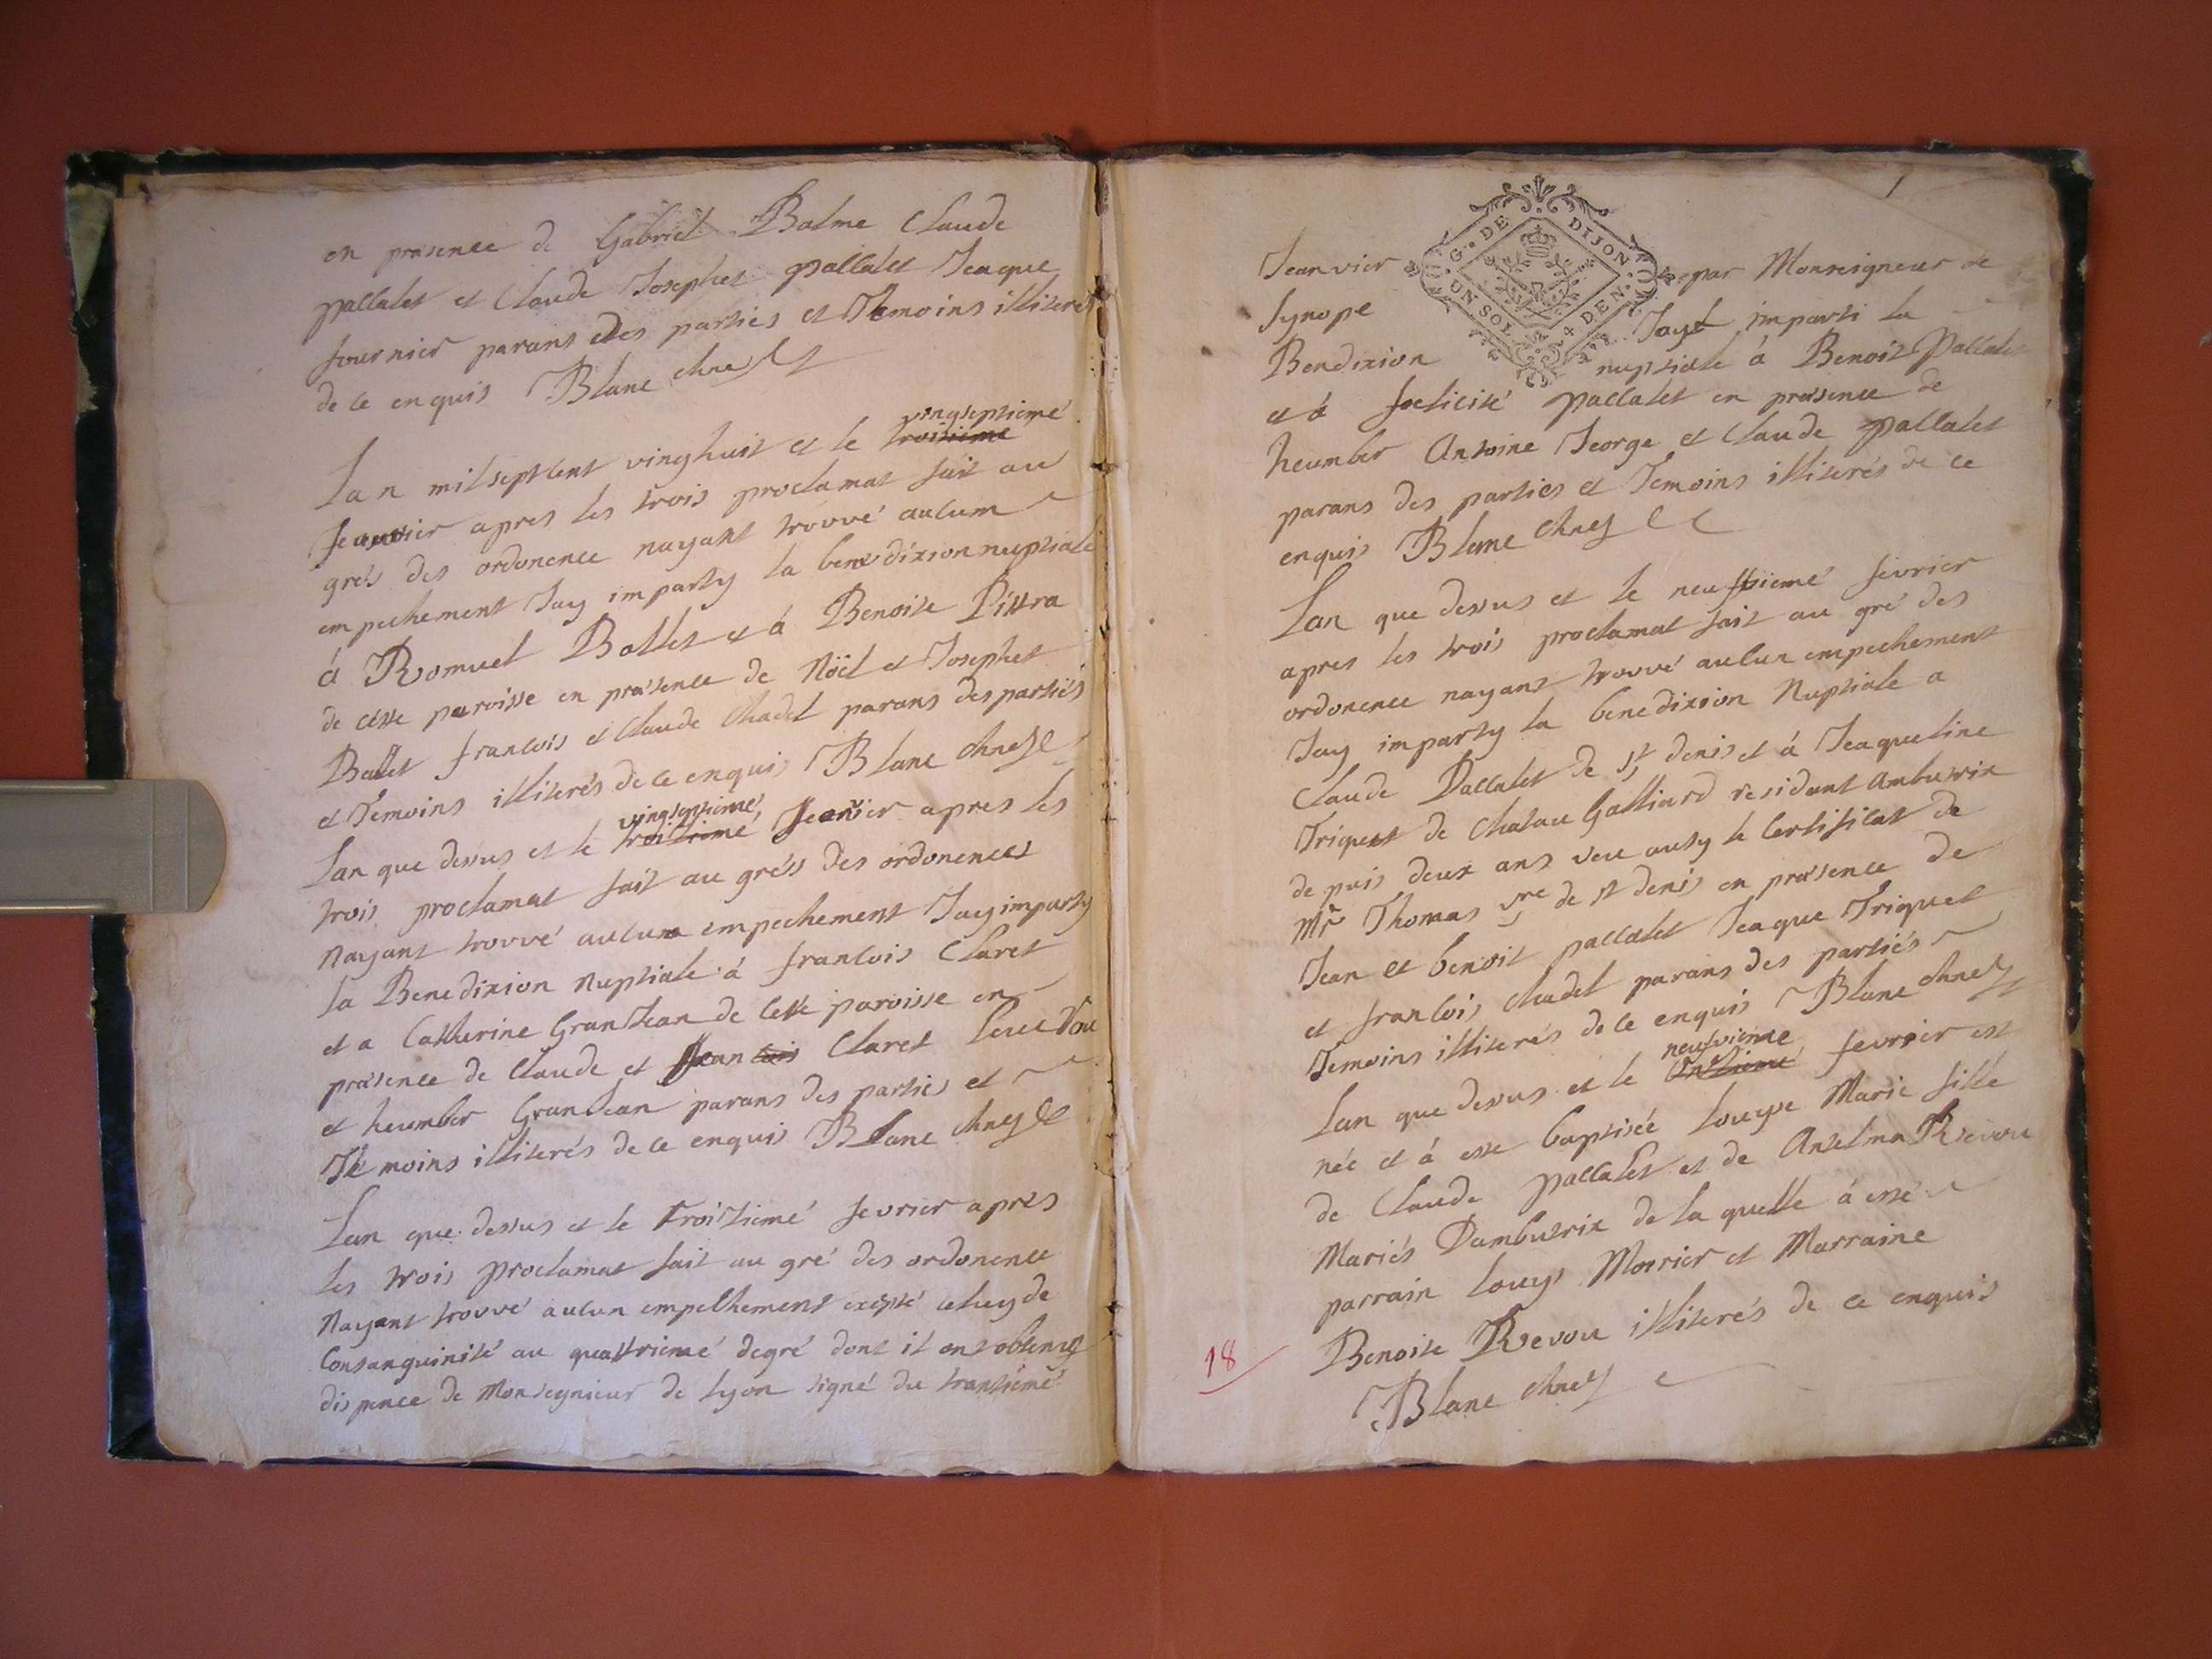 en præsence de Gabriel Balme Claude
pallalet et Claude Josephet pallalet Jeaque
fournier parans des parties et Temoins illiterés
de ce enquis Blanc chne
vingseptieme
Lan mil sept cent vinghuit et le troisieme
Jeanvier apres les trois proclamat fait au
grés des ordonence nayant trouvé aucum
empechement Jay imparty la benedixion nuptiale
á Romuel Ballet et á Benoite Pittra
de cette paroisse en præsence de Noël et Josephet
Ballet francois et Claude Chadel parans des partiés
et Temoins illiterés de ce enquis Blanc chne
vingseptieme
Lan que dessus et le troitieme Jeanvier apres les
trois proclamat fait au gréss des ordonences
Nayant trouvé aucune empechement Jay imparty
la Benedixion Nuptiale á francois Claret
et a Catherine GranJean de Cette paroisse en
præsence de Claude et Jean cois Claret
et heumber GranJean parans des parties et
Témoins illiterés de ce enquis Blanc chne
Lan que dessus et le Troitiemé fevrier apres
les trois proclamat fait au gré des ordonence
Nayant trouvé aucun empechement excepté celuy de
Consanguinité au quattriemé degré dont il ont obtenus
dispence de Monseignieur de Lyon signé du trantiemé
1
G. DE DIJON
UN SOL 4 DEN.
Jeanvier par Monseigneur de
Synope Jayt imparti la
Bendixion nuptiale á Benoit Pallalet
et á foelicité pallalet en præsence de
heumber Antoine Jeorge et Claude pallalet
parans des parties et Temoins illiterés de ce
enquis Blanc chne
Lan que dessus et le neufviemé fevrier
apres les trois proclamat fait au gré des
ordonence nayant trouvé aucun empechement
Jay imparty la benedixion Nuptiale a
Claude Pallalet de st denis et á Jeaqueline
Triquet de Chatau Galliard residant Ambutrix
depuis deux ans veu ausy le Certificat de
Mr Thomas de st denis en præsence de
Jean et benoit pallalet Jeaque Triquet
et francois chadel parans des partiés
Temoins illiterés de ce enquis Blanc chne
neufvieme
Lan que dessus et le fevrier est
née et á esté baptisée Louyse Marie fille
de Claude pallalet et de Anselma Revou
Mariés Dambutrix de la quelle á esté
parrain Louys Morier et Marraine
Benoite Revou illiterés de ce enquis
Blanc chne
18